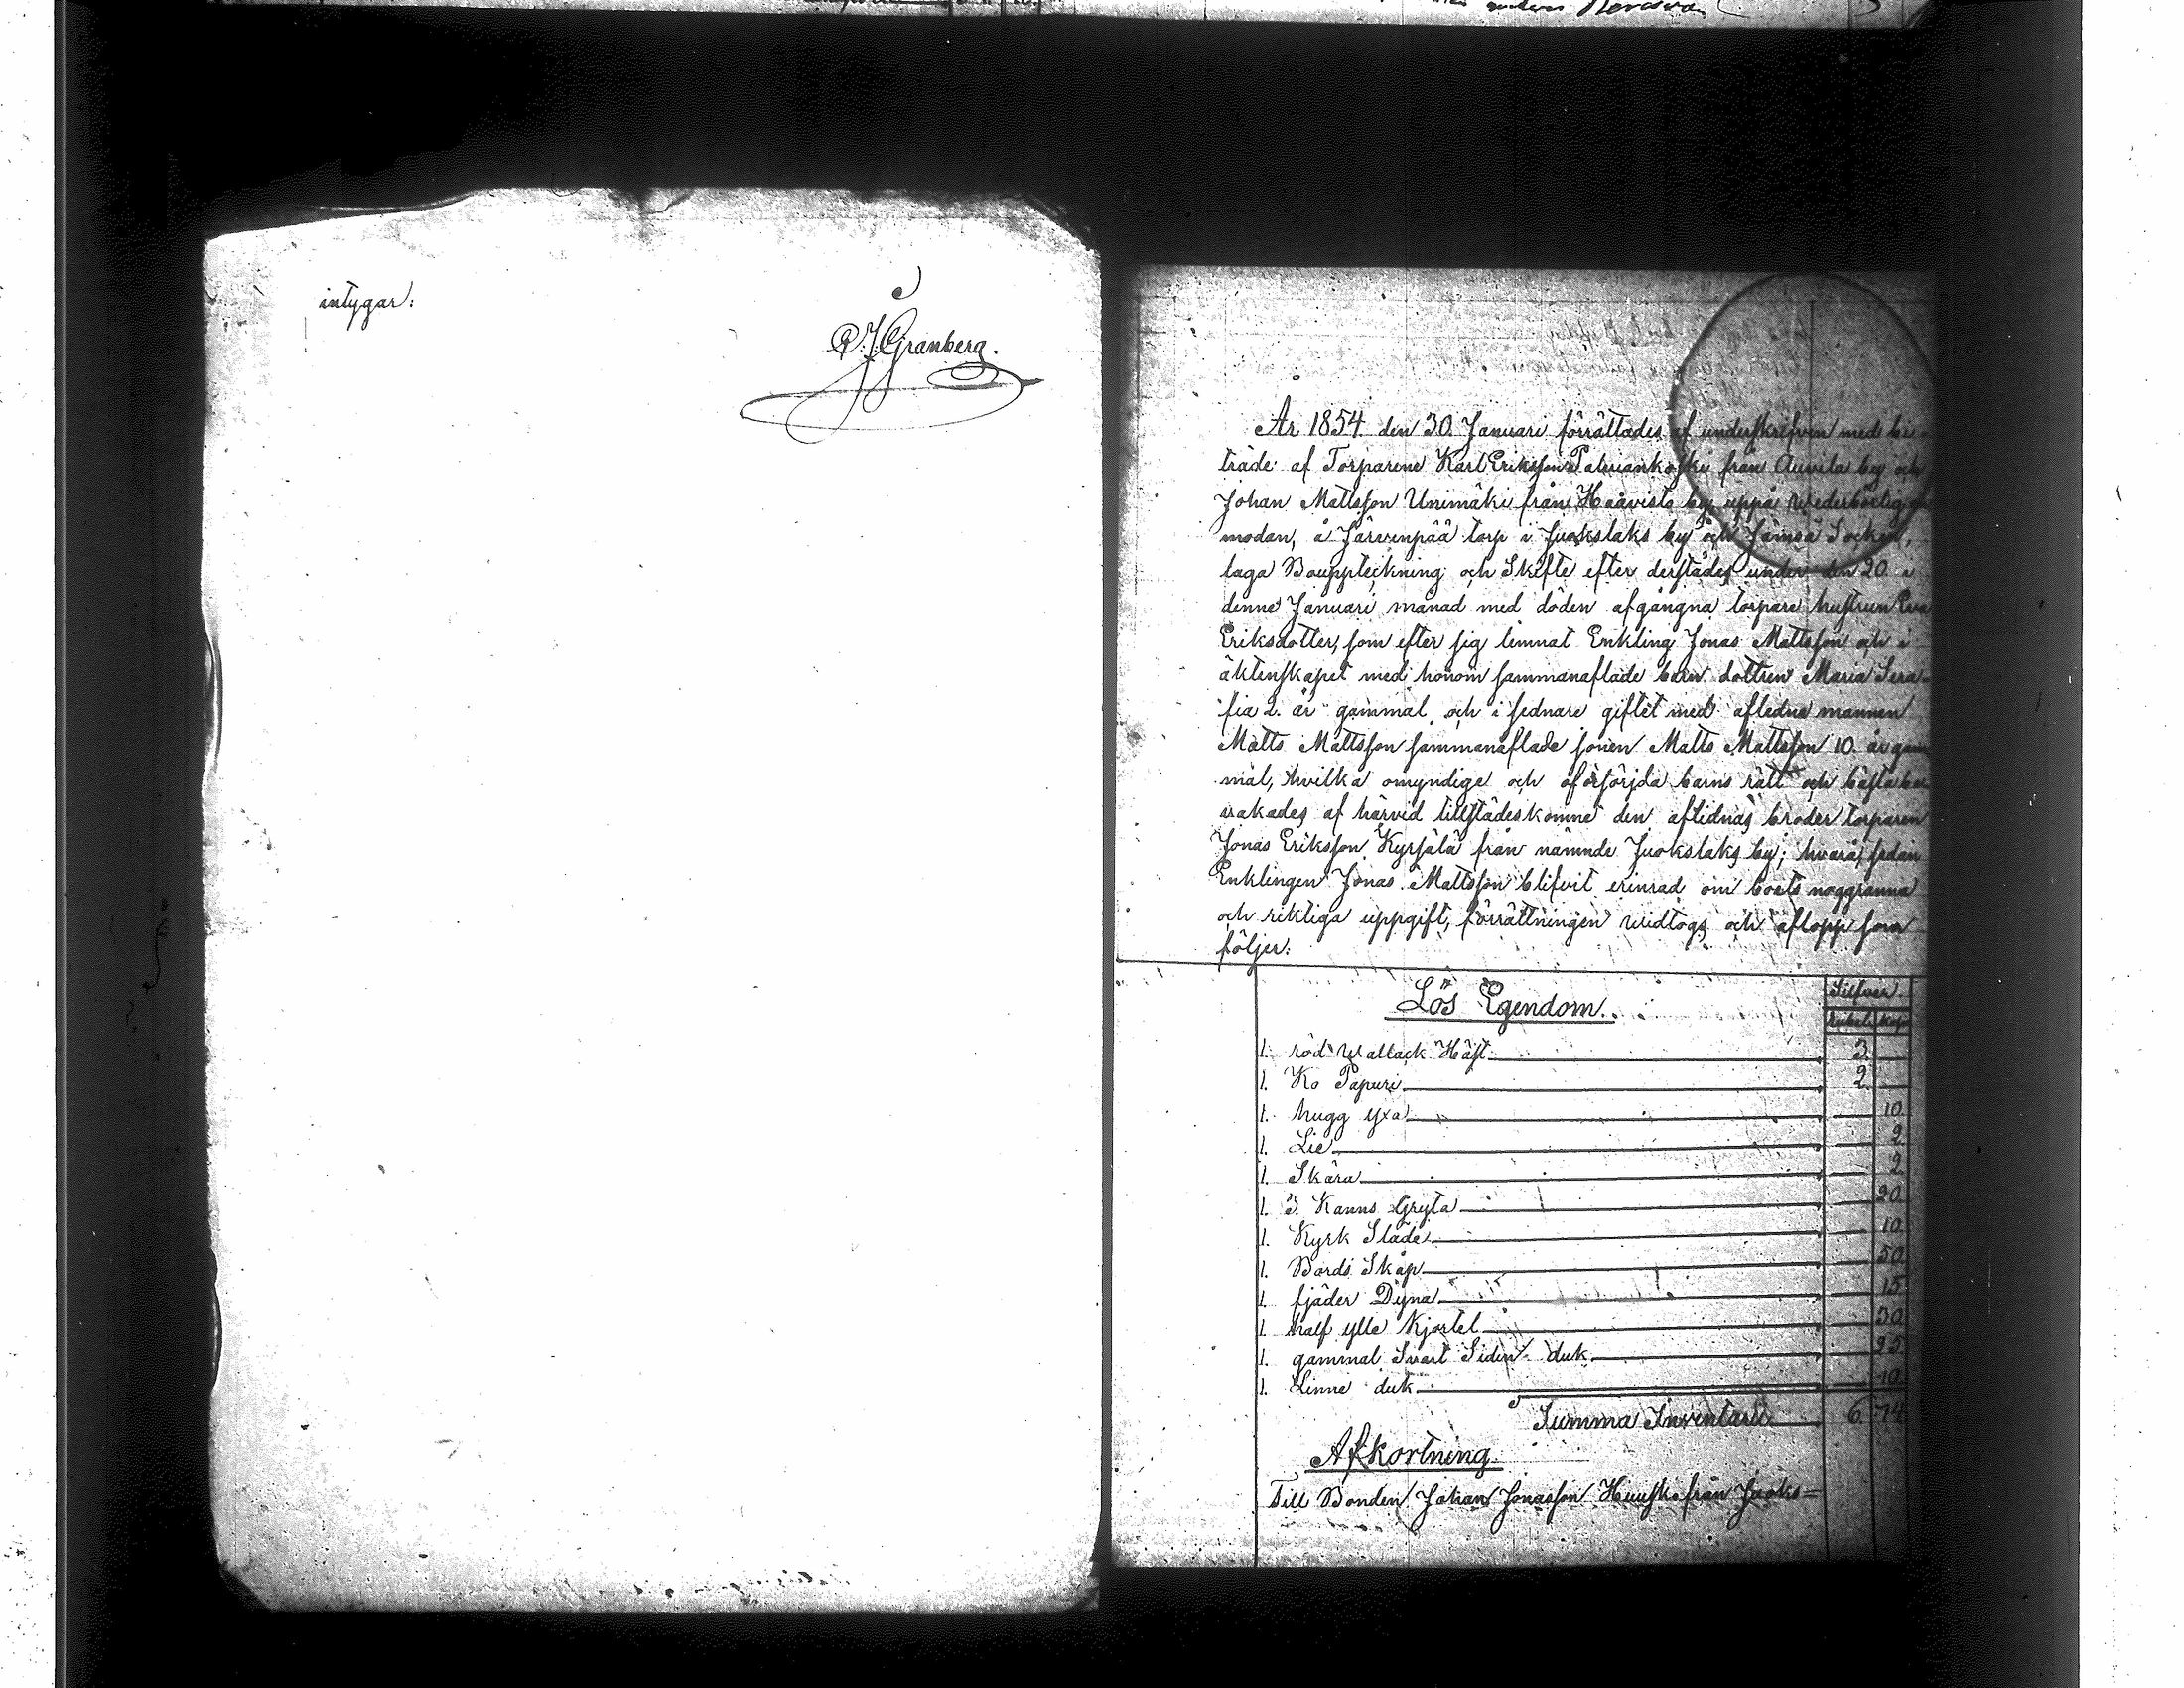 intygar:
C. J. Granberg.
År 1854 den 30 Januari förrättades af underskrifven med bi-
träde af Torparene Karl Eriksson Patviankoski från Auvila by och
Johan Mattsson Unimäki från Haavisto by, uppå wederbörlig
modan, å Järvenpää torp i Juokslaks by och Jämsä Socken,
laga Bouppteckning och Skifte efter derstädes under den 20 i
denne Januari månad med döden afgångna torpare hustrun Eva
Eriksdotter, som efter sig lemnat Enkling Jonas Mattsson och i
äktenskapet med honom sammanaflade barn dottren Maria Sera-
fia 2. år gammal och i sednare giftet med aflidne mannen
Matts Mattsson sammanaflade sonen Matts Mattsson 10. år gam
mal, hvilka omyndige och oförsörjda barns rätt och bästa be
vakades af härvid tillstädeskomne den aflidnas broder torparen
Jonas Eriksson Kyrjälä från nämnde Juokslaks by; hvarå, sedan
Enklingen Jonas Mattsson blifvit erinrad om boets noggranna
och riktiga uppgift, förrättningen vidtogs och aflopp som
följer:
Lös Egendom.
Silfver.
Rubel Kop
1. röd Wallack Häst 3.
1. Ko Papuri 2.
1. hugg yxa 10.
1. Lie 2.
1. Skära 2.
1. 3. Kanns Gryta 20.
1. Kyrk Släde 10.
1. Bords Skåp 50.
1. fjäder Dyna 15.
1. half ylle Kjortel 30.
1. gammal Svart Siden duk 25.
1. Linne duk 10.
Summa Inventarii 6. 74.
Afkortning.
Till Bonden Johan Jonasson Huusko från Juoks=